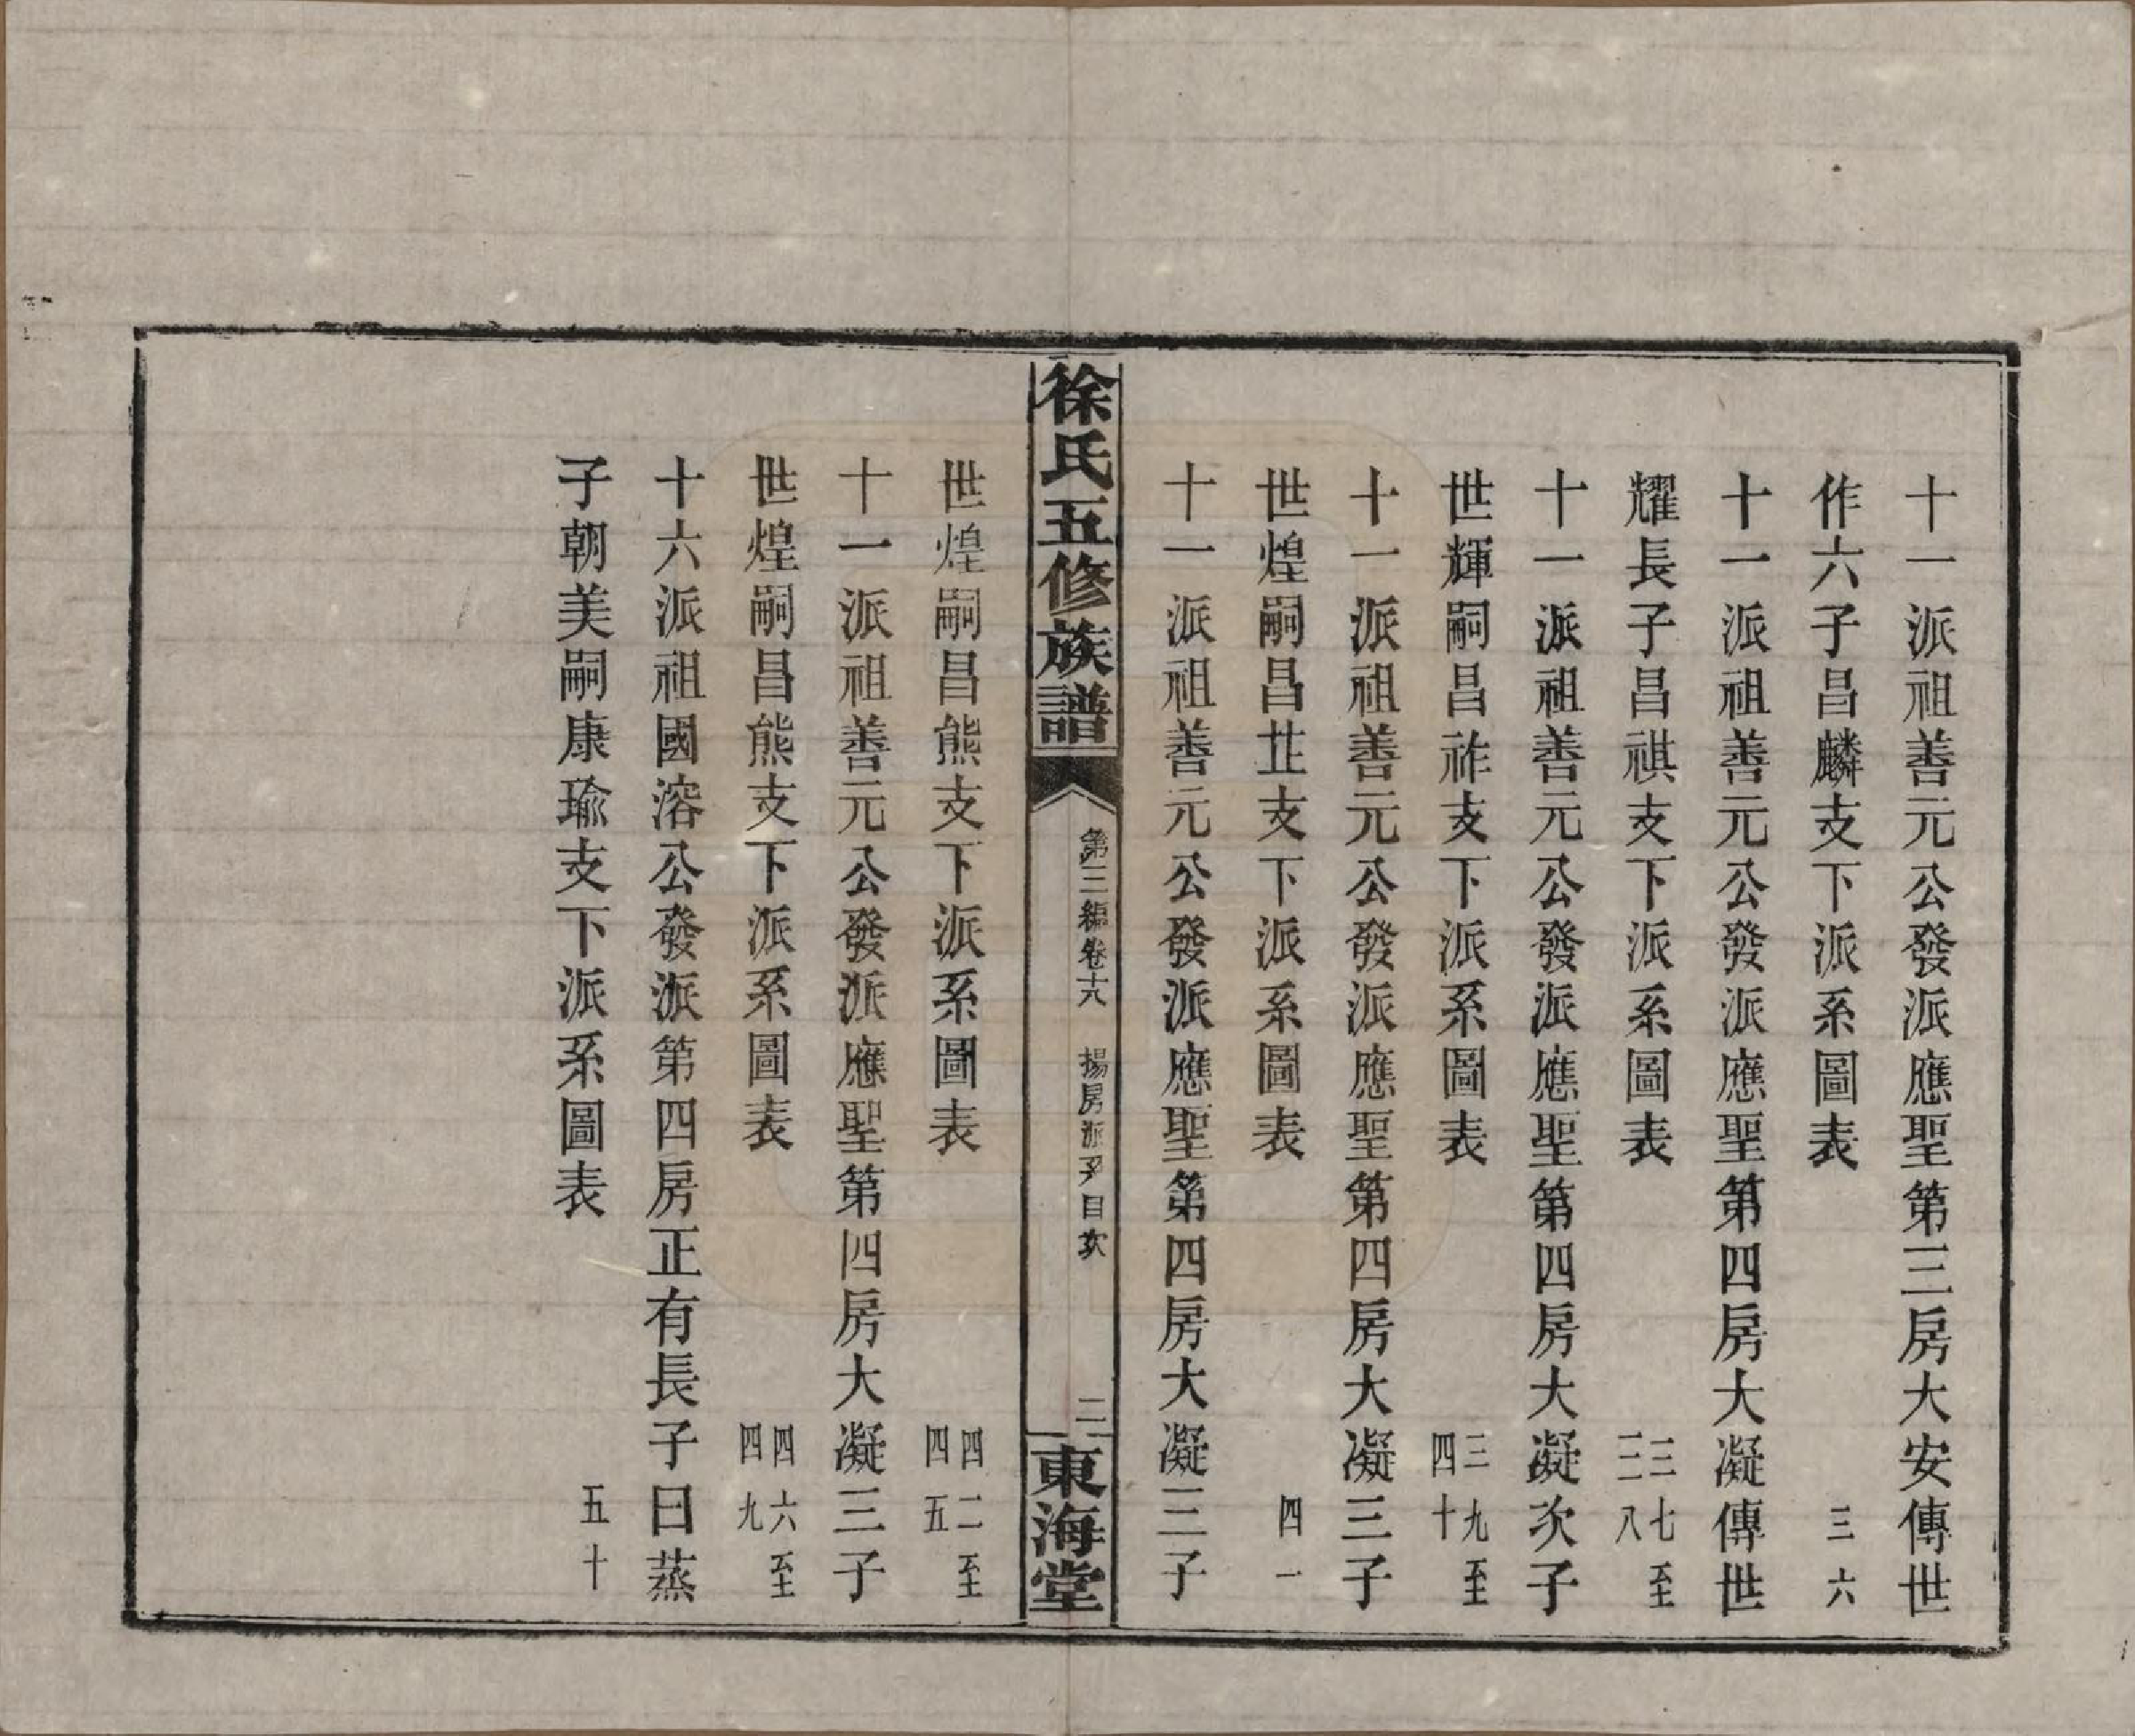 十一派祖善元公發派應聖第三房大安傳世
作六子昌麟支下派系圖表 三六
十一派祖善元公發派應聖第四房大凝傳世
耀長子昌祺支下派系圖表 三七至三八
十一派祖善元公發派應聖第四房大凝次子
世輝嗣昌祚支下派系圖表 三九至四十
十一派祖善元公發派應聖第四房大凝三子
世煌嗣昌芷支下派系圖表 四一
十一派祖善元公發派應聖第四房大凝三子
徐氏五修族譜
第三編卷十八 揚房派系目次
二
東海堂
世煌嗣昌熊支下派系圖表 四二至四五
十一派祖善元公發派應聖第四房大凝三子
世煌嗣昌熊支下派系圖表 四六至四九
十六派祖國溶公發派第四房正有長子曰蒸
子朝美嗣康瑜支下派系圖表 五十